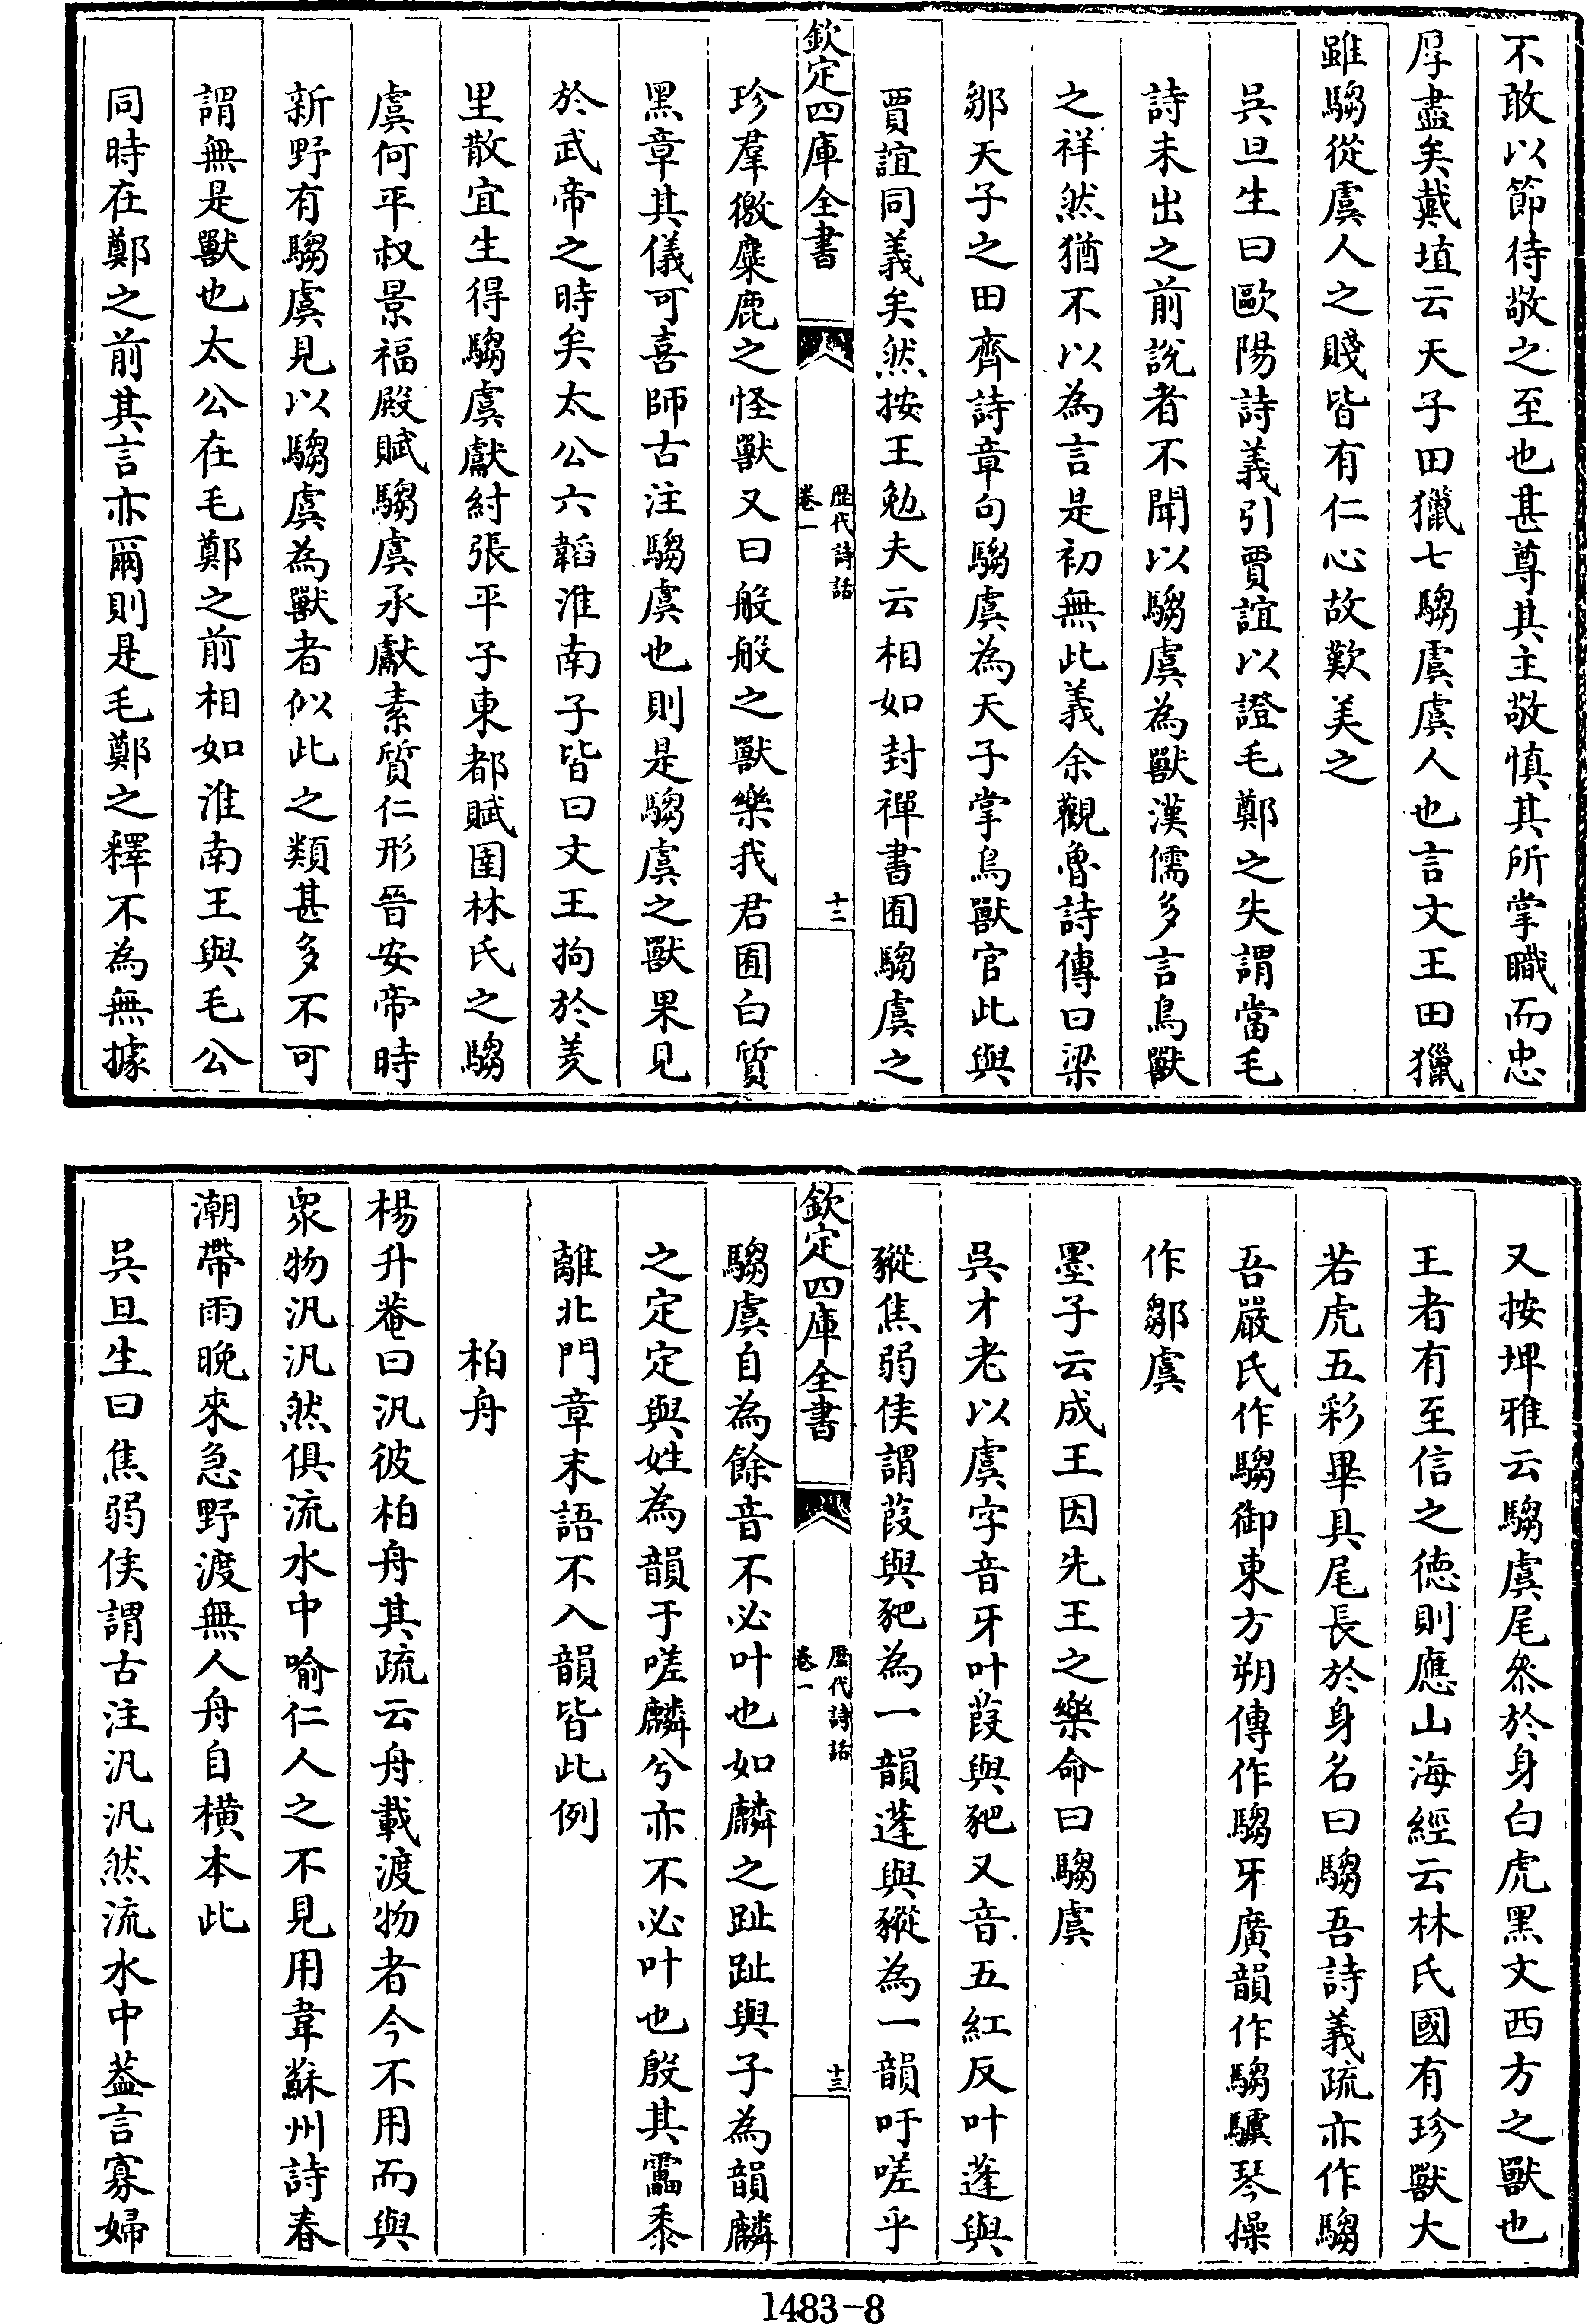 不敢以節待敬之至也甚尊其主敬慎其所掌職而忠
厚盡矣戴埴云天子田獵七騶虞虞人也言文王田獵
雖騶從虞人之賤皆有仁心故歎美之
吳旦生曰歐陽詩義引賈誼以證毛鄭之失謂當毛
詩未出之前說者不聞以騶虞為獸漢儒多言鳥獸
之祥然猶不以為言是初無此義余觀魯詩傳曰梁
鄒天子之田齊詩章句騶虞為天子掌鳥獸官此與
賈誼同義矣然按王勉夫云相如封禪書囿騶虞之
欽定四庫全書
歷代詩話
卷一
十二
珍羣徼麋鹿之怪獸又曰般般之獸樂我君囿白質
黑章其儀可喜師古注騶虞也則是騶虞之獸果見
於武帝之時矣太公六韜淮南子皆曰文王拘於羑
里散宜生得騶虞獻紂張平子東都賦圉林氏之騶
虞何平叔景福殿賦騶虞承獻素質仁形晉安帝時
新野有騶虞見以騶虞為獸者似此之類甚多不可
謂無是獸也太公在毛鄭之前相如淮南王與毛公
同時在鄭之前其言亦爾則是毛鄭之釋不為無據
又按埤雅云騶虞尾叅於身白虎黑文西方之獸也
王者有至信之德則應山海經云林氏國有珍獸大
若虎五彩畢具尾長於身名曰騶吾詩義疏亦作騶
吾嚴氏作騶御東方朔傳作騶牙廣韻作騶䮫琴操
作鄒虞
墨子云成王因先王之樂命曰騶虞
吳才老以虞字音牙叶葭與豝又音五紅反叶蓬與
豵焦弱侯謂葭與豝為一韻蓬與豵為一韻吁嗟乎
欽定四庫全書
歷代詩話
卷一
十三
騶虞自為餘音不必叶也如麟之趾趾與子為韻麟
之定定與姓為韻于嗟麟兮亦不必叶也殷其靁黍
離北門章末語不入韻皆此例
柏舟
楊升菴曰汎彼柏舟其疏云舟載渡物者今不用而與
衆物汎汎然俱流水中喻仁人之不見用韋蘇州詩春
潮帶雨晚來急野渡無人舟自橫本此
吳旦生曰焦弱侯謂古注汎汎然流水中葢言寡婦
1483-8